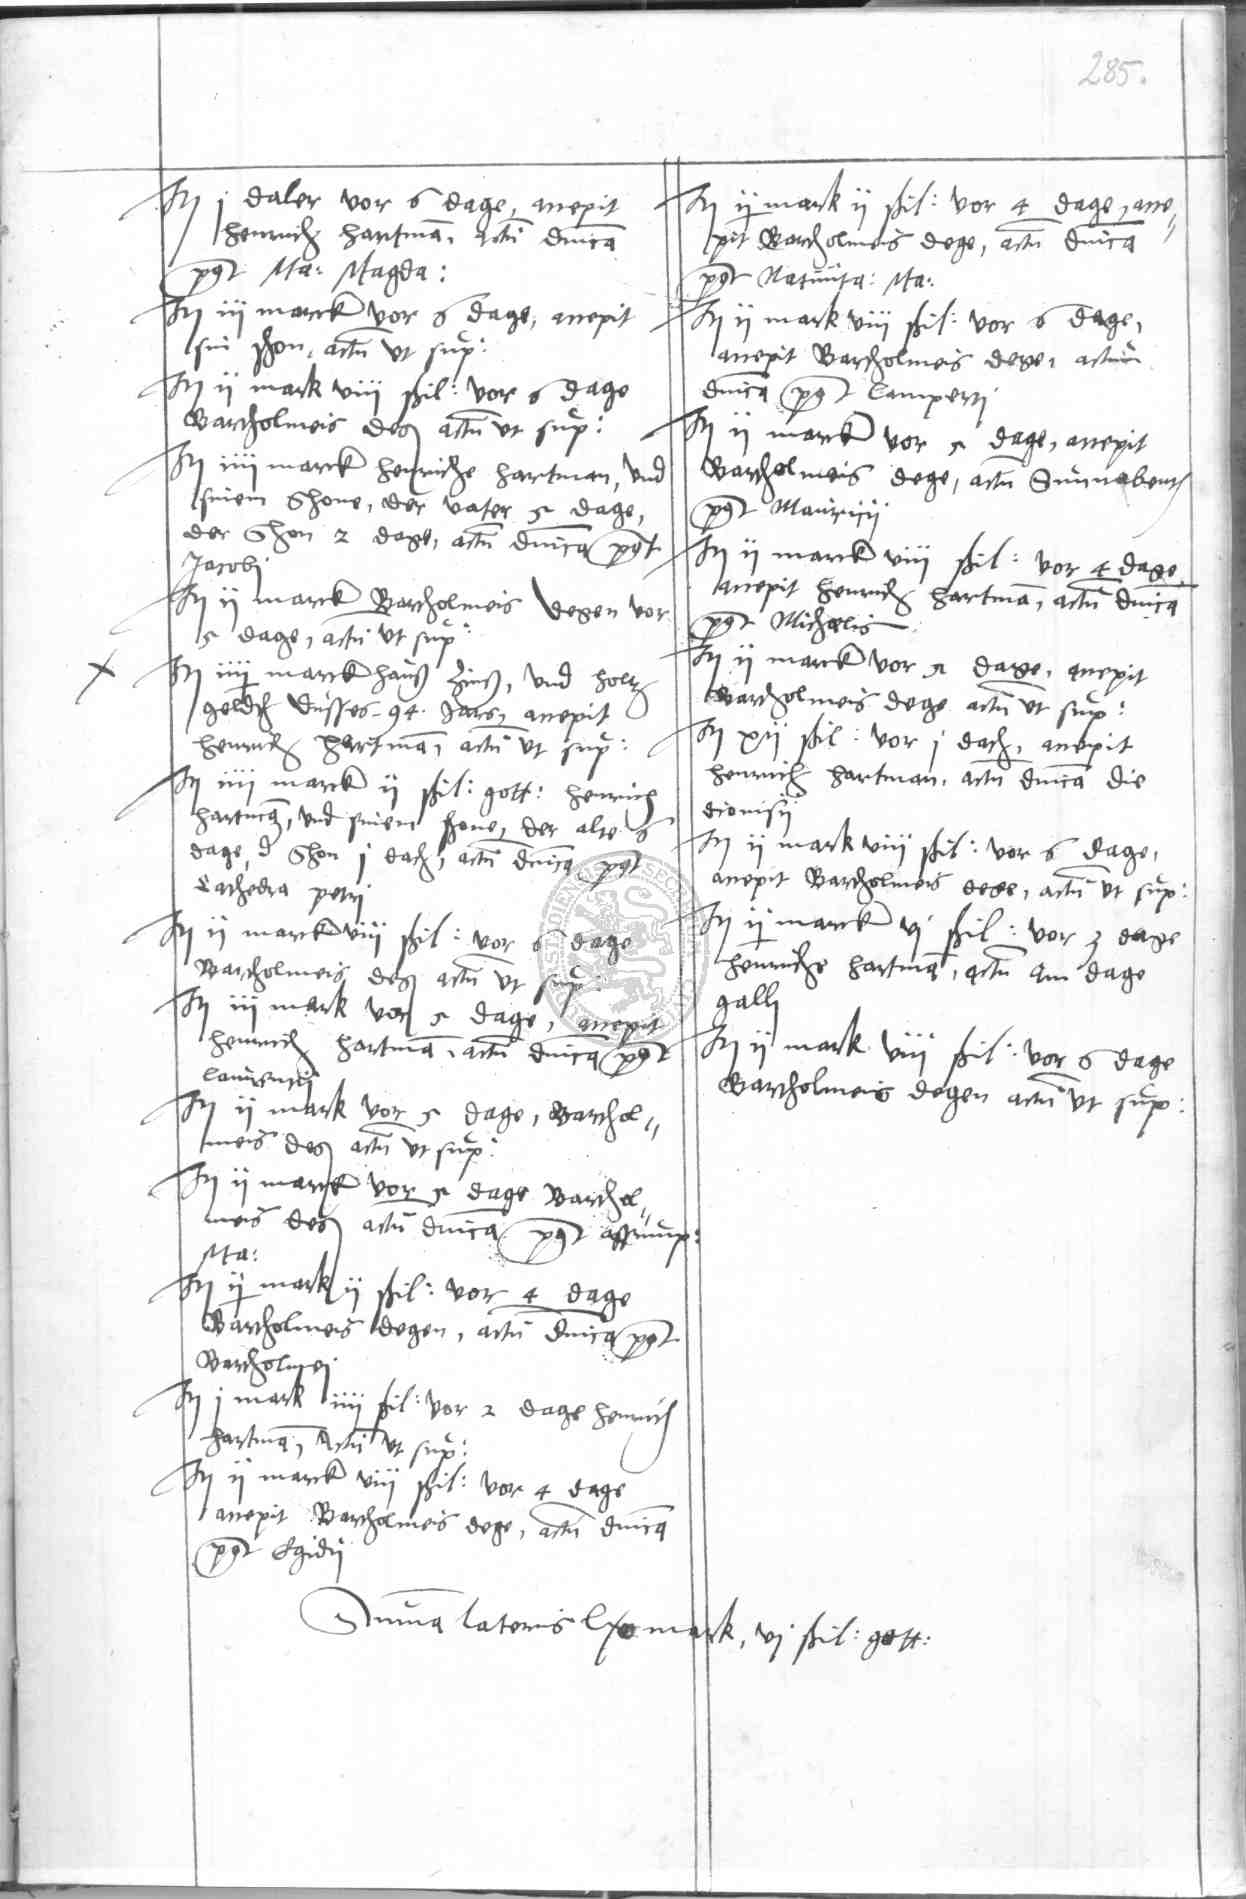 285.
It j daler vor 6 dage, accepit
Henrich Hartmā, actū dnica
post Ma: Magda:
It iij marck vor 6 dage, accepit
sin shon, actū ut sup:
It ij mark viij ßil: vor 6 dage
Bartholmeis deg actū ut sup:
It iiij marck Henriche Hartman, und
sinem shone, der vater 5 dage,
der shon 2 dage, actū dnica post
Jacobj
It ij marck Bartholmeis degen vor
5 dage, actū ut sup:
It iiij marck hauß Zinß, und holtz
geldt dusses 94. Jars, accepit
Henrich Hartmā, actū ut sup:
It iiij marck ij ßil: gott: Henrich
Hartmā, und sinem shone, der alte 6
dage, d shon j dach, actū dnica post
Cathedra petrj
It ij marck viij ßil: vor 6 dage
Bartholmeis deg actū ut sup:
It iij mark vor 5 dage, accepit
Henrich Hartmā, actū dnica post
Laurentij
It ij mark vor 5 dage, Barthol=
meis deg actū ut sup:
It ij marck vor 5 dage Barthol=
meis deg actū dnica post assump:
Ma:
It ij mark ij ßil: vor 4 dage
Bartholmeis degen, actū dnica post
Bartholmej
It j mark iiij ßil: vor 2 dage Henrich
Hartmā, actū ut sup:
It ij marck viij ßil: vor 4 dage
accepit Bartholmeis dege, actū dnica
post Egidij
It ij mark ij ßil: vor 4 dage, acce=
pit Bartholmeis dege, actū dnica
post Nativita: Ma:
It ij mark viij ßil: vor 6 dage,
accepit Bartholmeis dege, actum
dnica post Lampertj
It ij marck vor 5 dage, accepit
Bartholmeis dege, actū Sunnabent
post Mauricij
It ij marck viij ßil: vor 4 dage
accepit Henrich Hartmā, actū dnica
post Michaelis
It ij marck vor 5 dage, accepit
Bartholmeis dege actū ut sup:
It xij ßil: vor j dach, accepit
Henrich Hartman, actū dnica die
dionisij
It ij mark viij ßil: vor 6 dage,
accepit Bartholmeis dege, actū ut sup:
It ij marck vj ßil: vor 3 dage
Henriche Hartmā, actū am dage
gallj
It ij mark viij ßil: vor 6 dage
Bartholmeis degen actū ut sup:
Suma lateris mark, vj ßil: gott: